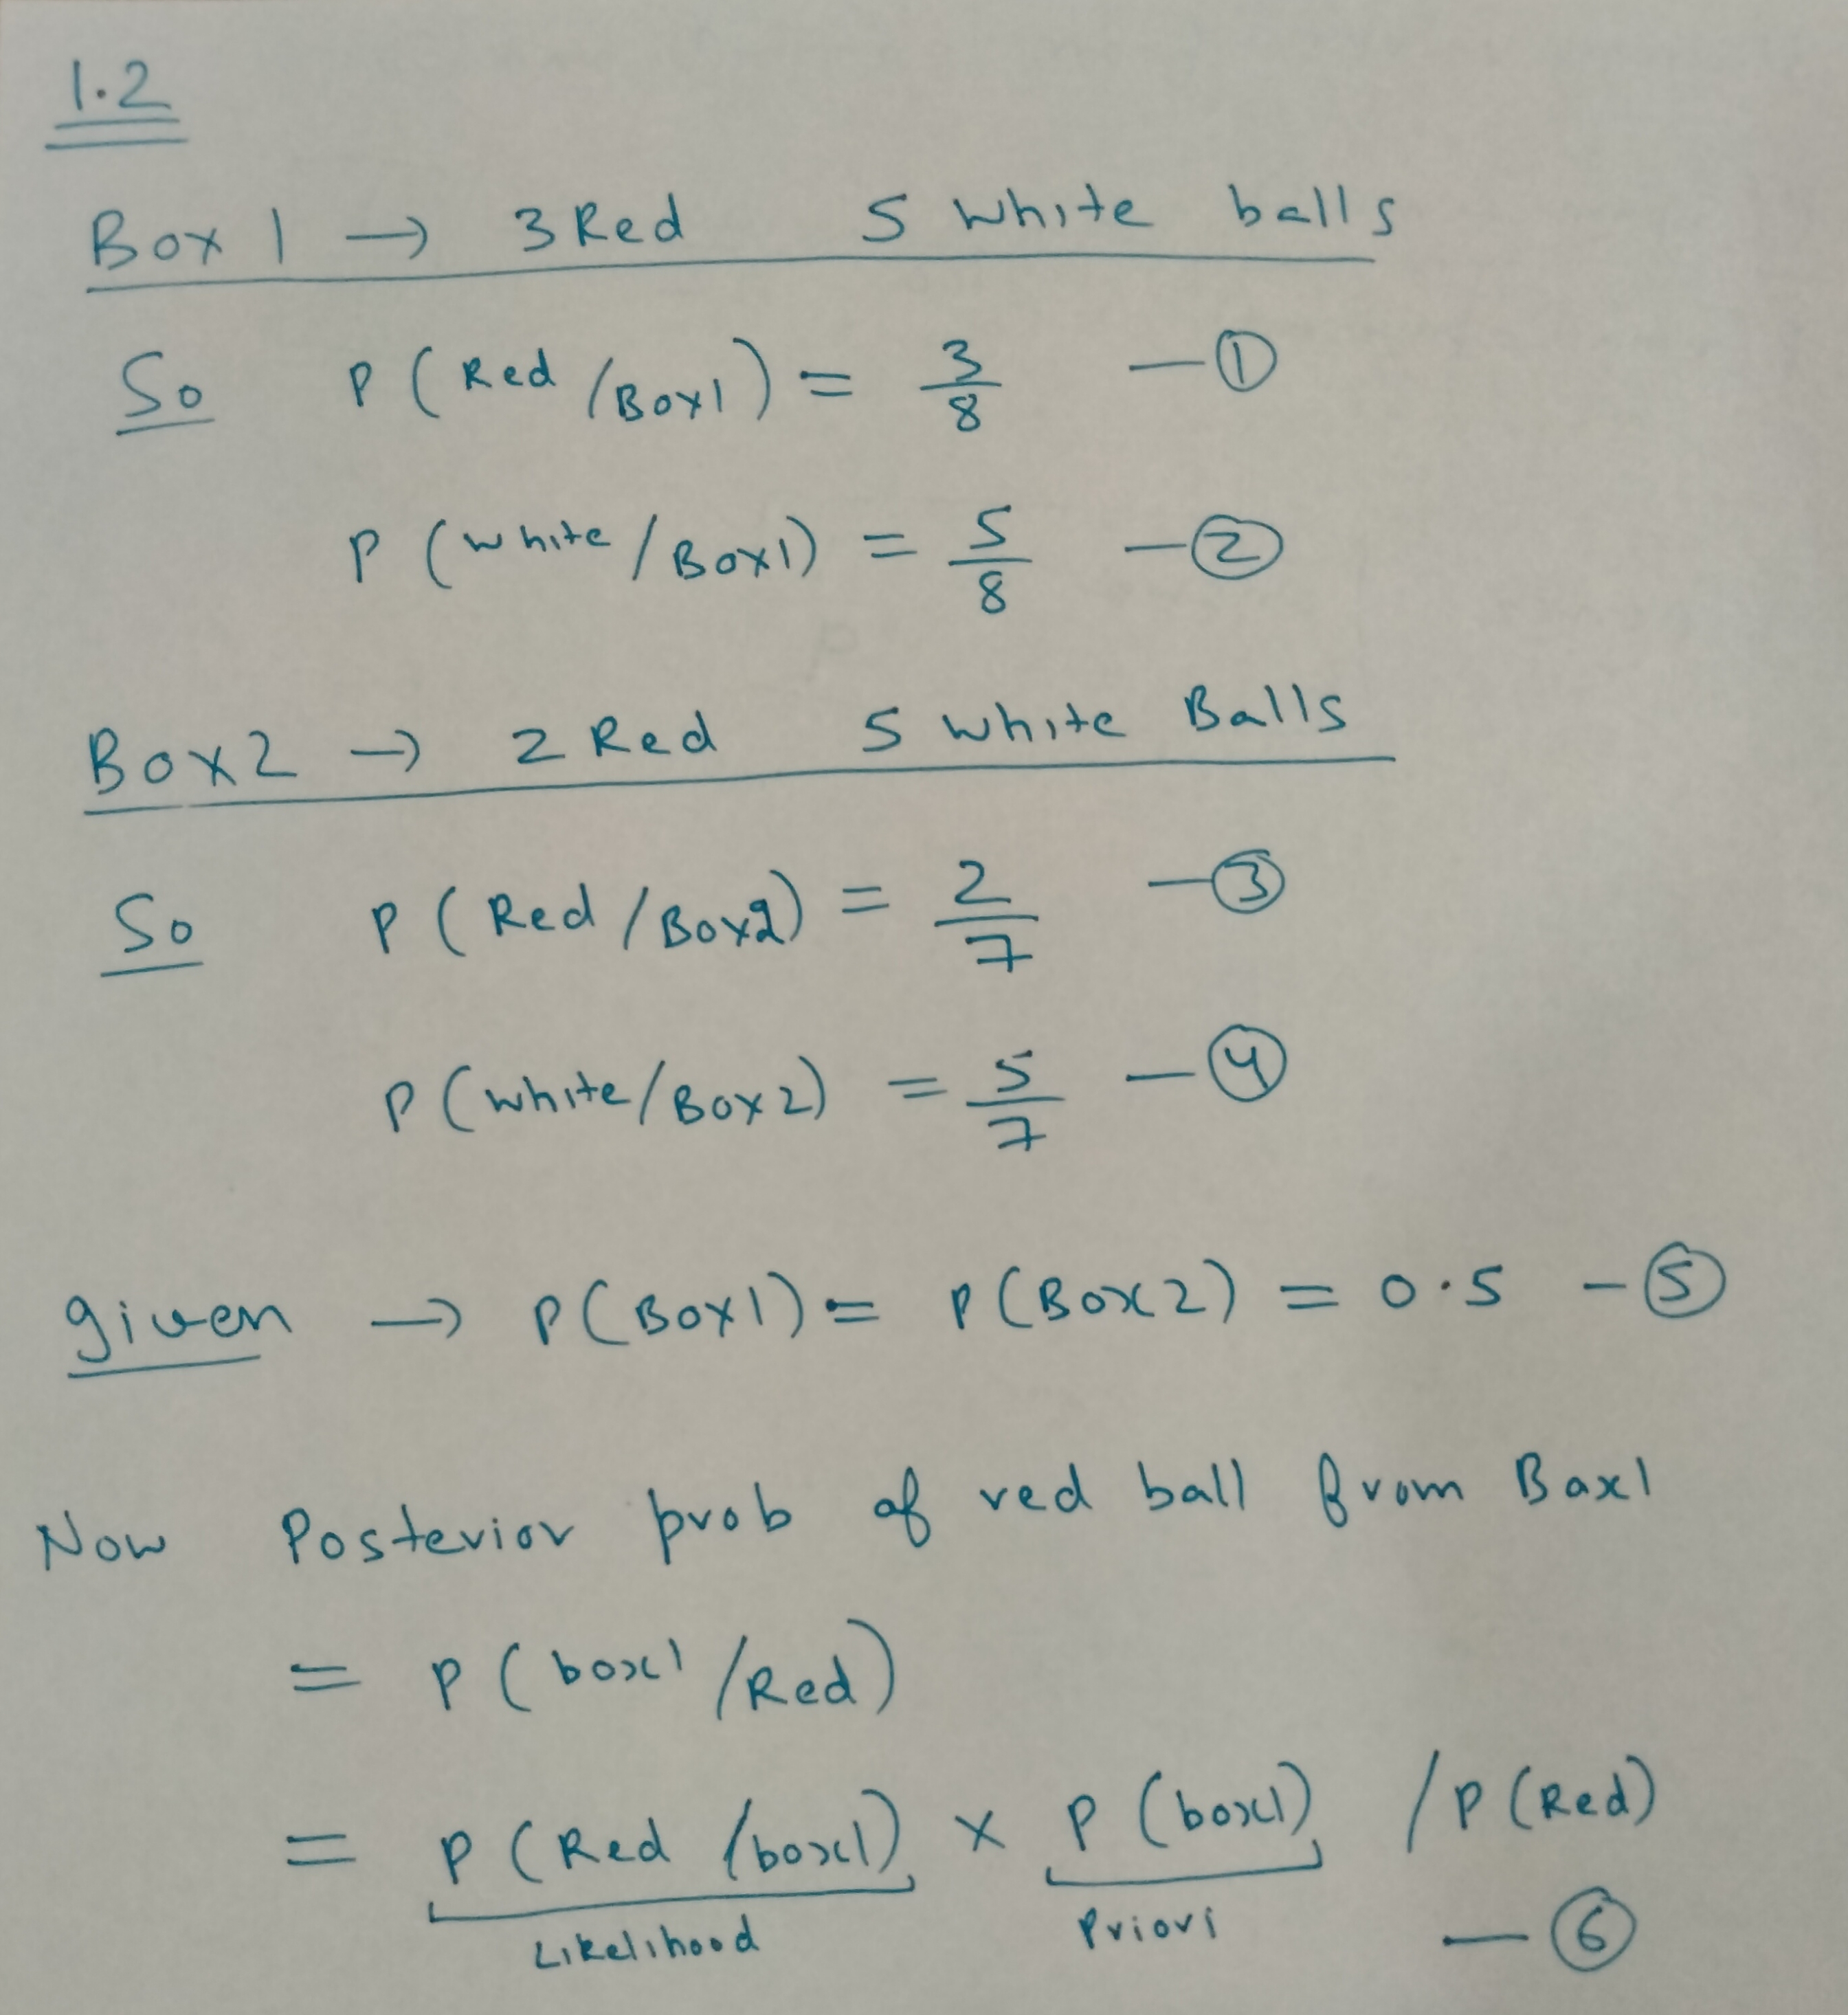 1.2
Box 1 → 3 Red 5 white balls
So P ( Red / Box1 ) = 3/8 — ①
P ( white / Box1 ) = 5/8 — ②
Box2 → 2 Red 5 white Balls
So P ( Red / Box2 ) = 2/7 — ③
P ( white / Box2 ) = 5/7 — ④
given → P ( Box1 ) = P ( Box2 ) = 0.5 — ⑤
Now Posterior prob of red ball from Box1
= P ( box1 / Red )
= P ( Red / box1 ) × P ( box1 ) / P ( Red )
Likelihood Priori — ⑥